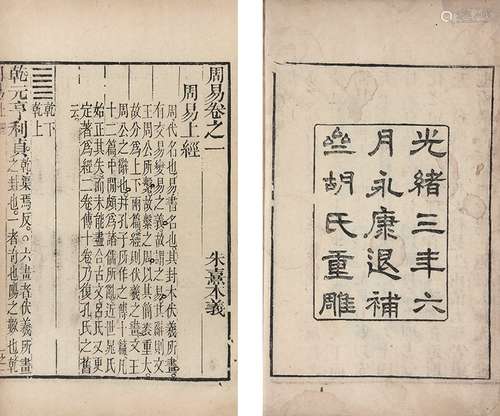 光緒三年六
月永康退補
亝胡氏重雕
周易卷之一
周易上經
朱熹本義
周代名也易書名也其卦本伏羲所畫
有交易變易之義故謂之易其辭則文
王周公所繫故繫之周以其簡袠重大
故分爲上下兩篇經則伏羲之畫文王
周公之辭也并孔子所作之傳十篇凡
十二篇中間頗爲諸儒所亂近世晁氏
始正其失而未能盡合古文呂氏又更
定著爲經二卷傳十卷乃復孔氏之舊
云
乾下
乾上
乾元亨利貞
乾渠焉反。○六畫者伏羲所畫
之卦也。一者奇也陽之數也乾